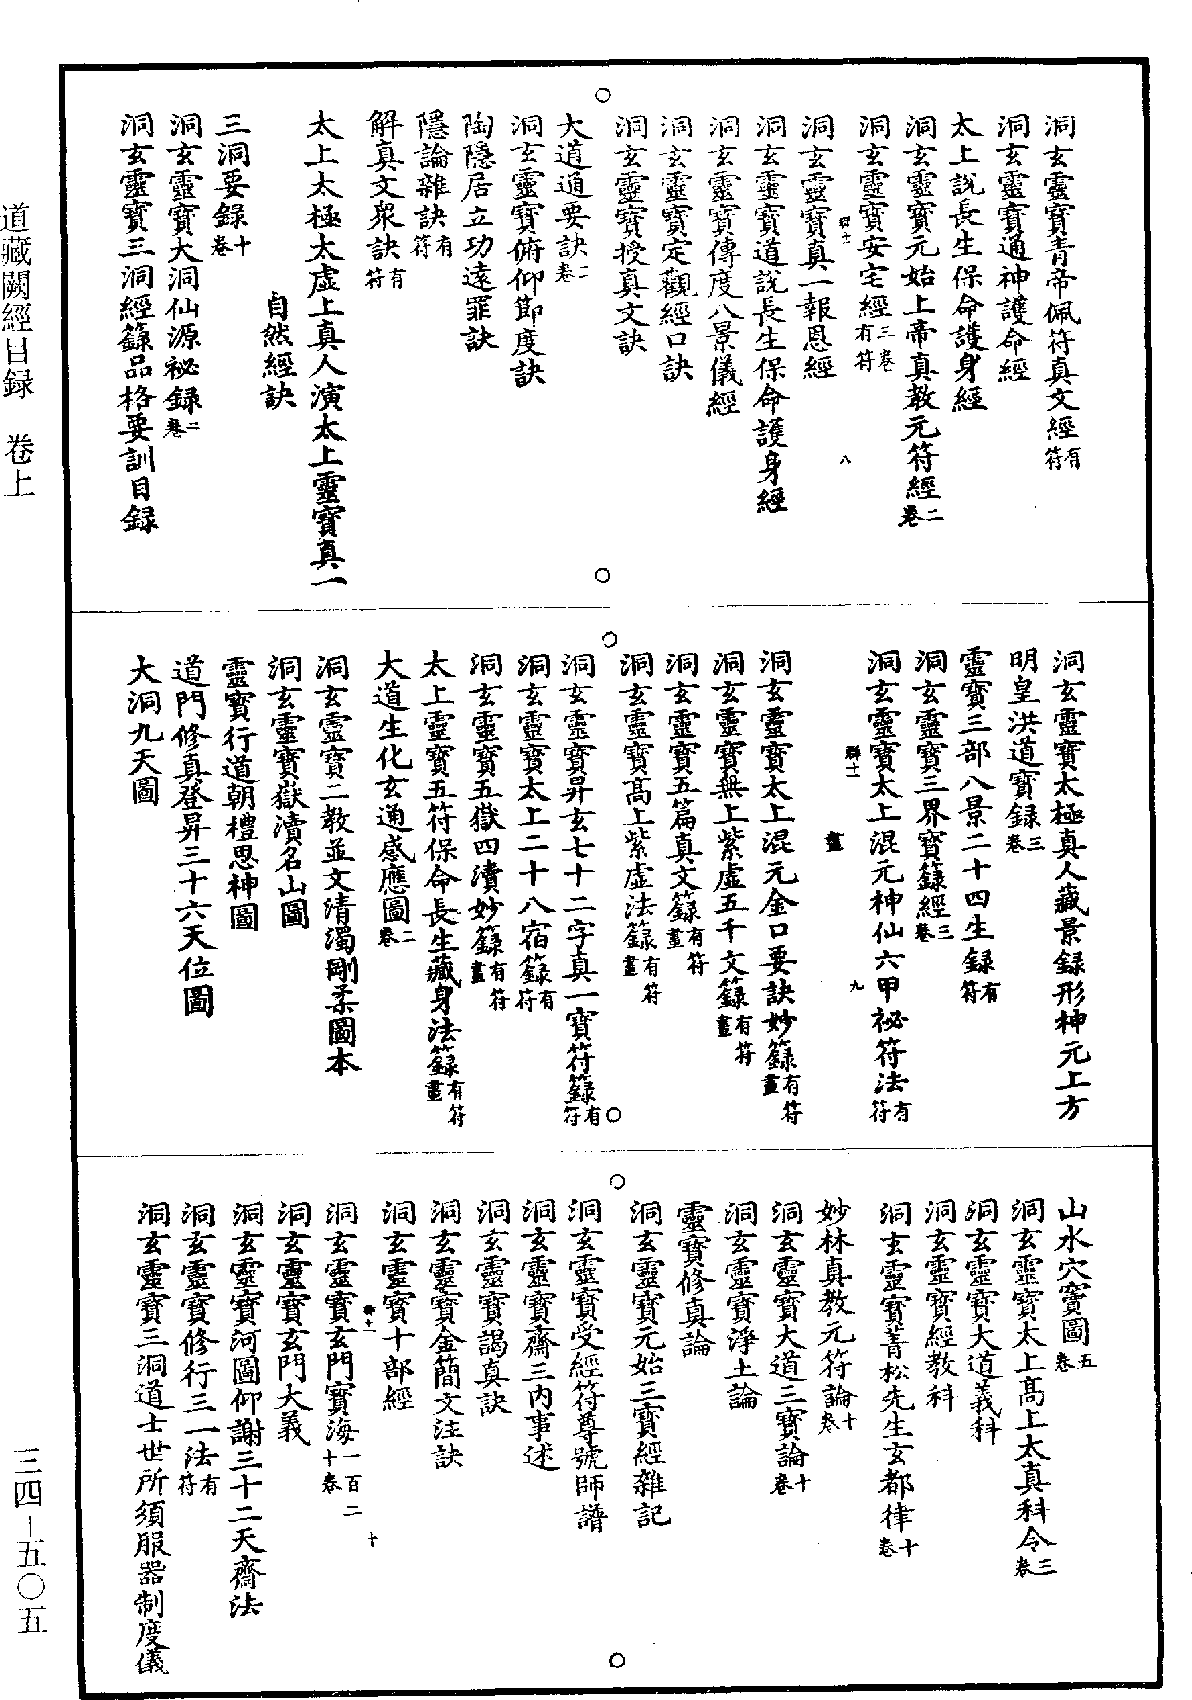 洞玄靈寶青帝佩符真文經有符
洞玄靈寶通神護命經
太上說長生保命護身經
洞玄靈寶元始上帝真教元符經二卷
洞玄靈寶安宅經三卷有符
八
洞玄靈寶真一報恩經
洞玄靈寶道說長生保命護身經
洞玄靈寶傳度八景儀經
洞玄靈寶定觀經口訣
洞玄靈寶授真文訣
大道通要訣二卷
洞玄靈寶俯仰節度訣
陶隱居立功遠罪訣
隱論雜訣有符
解真文眾訣有符
太上太極太虛上真人演太上靈寶真一
自然經訣
三洞要録十卷
洞玄靈寶大洞仙源祕録二卷
洞玄靈寶三洞經籙品格要訓目録
洞玄靈寶太極真人藏景録形神元上方
明皇洪道寶録三卷
靈寶三部八景二十四生録有符
洞玄靈寶三界寶籙經三卷
洞玄靈寶太上混元神仙六甲祕符法有符
九
畫
洞玄靈寶太上混元金口要訣妙籙有符畫
洞玄靈寶無上紫虛五千文籙有符畫
洞玄靈寶五篇真文籙有符畫
洞玄靈寶高上紫虛法籙有符畫
洞玄靈寶昇玄七十二字真一寶符籙有符
洞玄靈寶太上二十八宿籙有符
洞玄靈寶五獄四瀆妙籙有符畫
太上靈寶五符保命長生藏身法籙有符畫
大道生化玄通感應圖二卷
洞玄靈寶二教並文清濁剛柔圖本
洞玄靈寶獄瀆名山圖
靈寶行道朝禮思神圖
道門修真登昇三十六天位圖
大洞九天圖
山水穴竇圖五卷
洞玄靈寶太上高上太真科令三卷
洞玄靈寶大道義科
洞玄靈寶經教科
洞玄靈寶菁松先生玄都律十卷
妙林真教元符論十卷
洞玄靈寶大道三寶論十卷
洞玄靈寶淨土論
靈寶修真論
洞玄靈寶元始三寶經雜記
洞玄靈寶受經符尊號師譜
洞玄靈寶齋三內事述
洞玄靈寶謁真訣
洞玄靈寶金簡文注訣
洞玄靈寶十部經
十
洞玄靈寶玄門寶海一百二十卷
洞玄靈寶玄門大義
洞玄靈寶河圖仰謝三十二天齋法
洞玄靈寶修行三一法有符
洞玄靈寶三洞道士世所須服器制度儀
道藏闕經目録 卷上
三四－五〇五